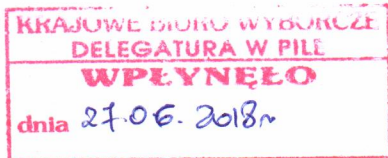 KRAJOWE BIURO WYBORCZE
DELEGATURA W PILE
WPŁYNĘŁO
dnia 27.06.2018r